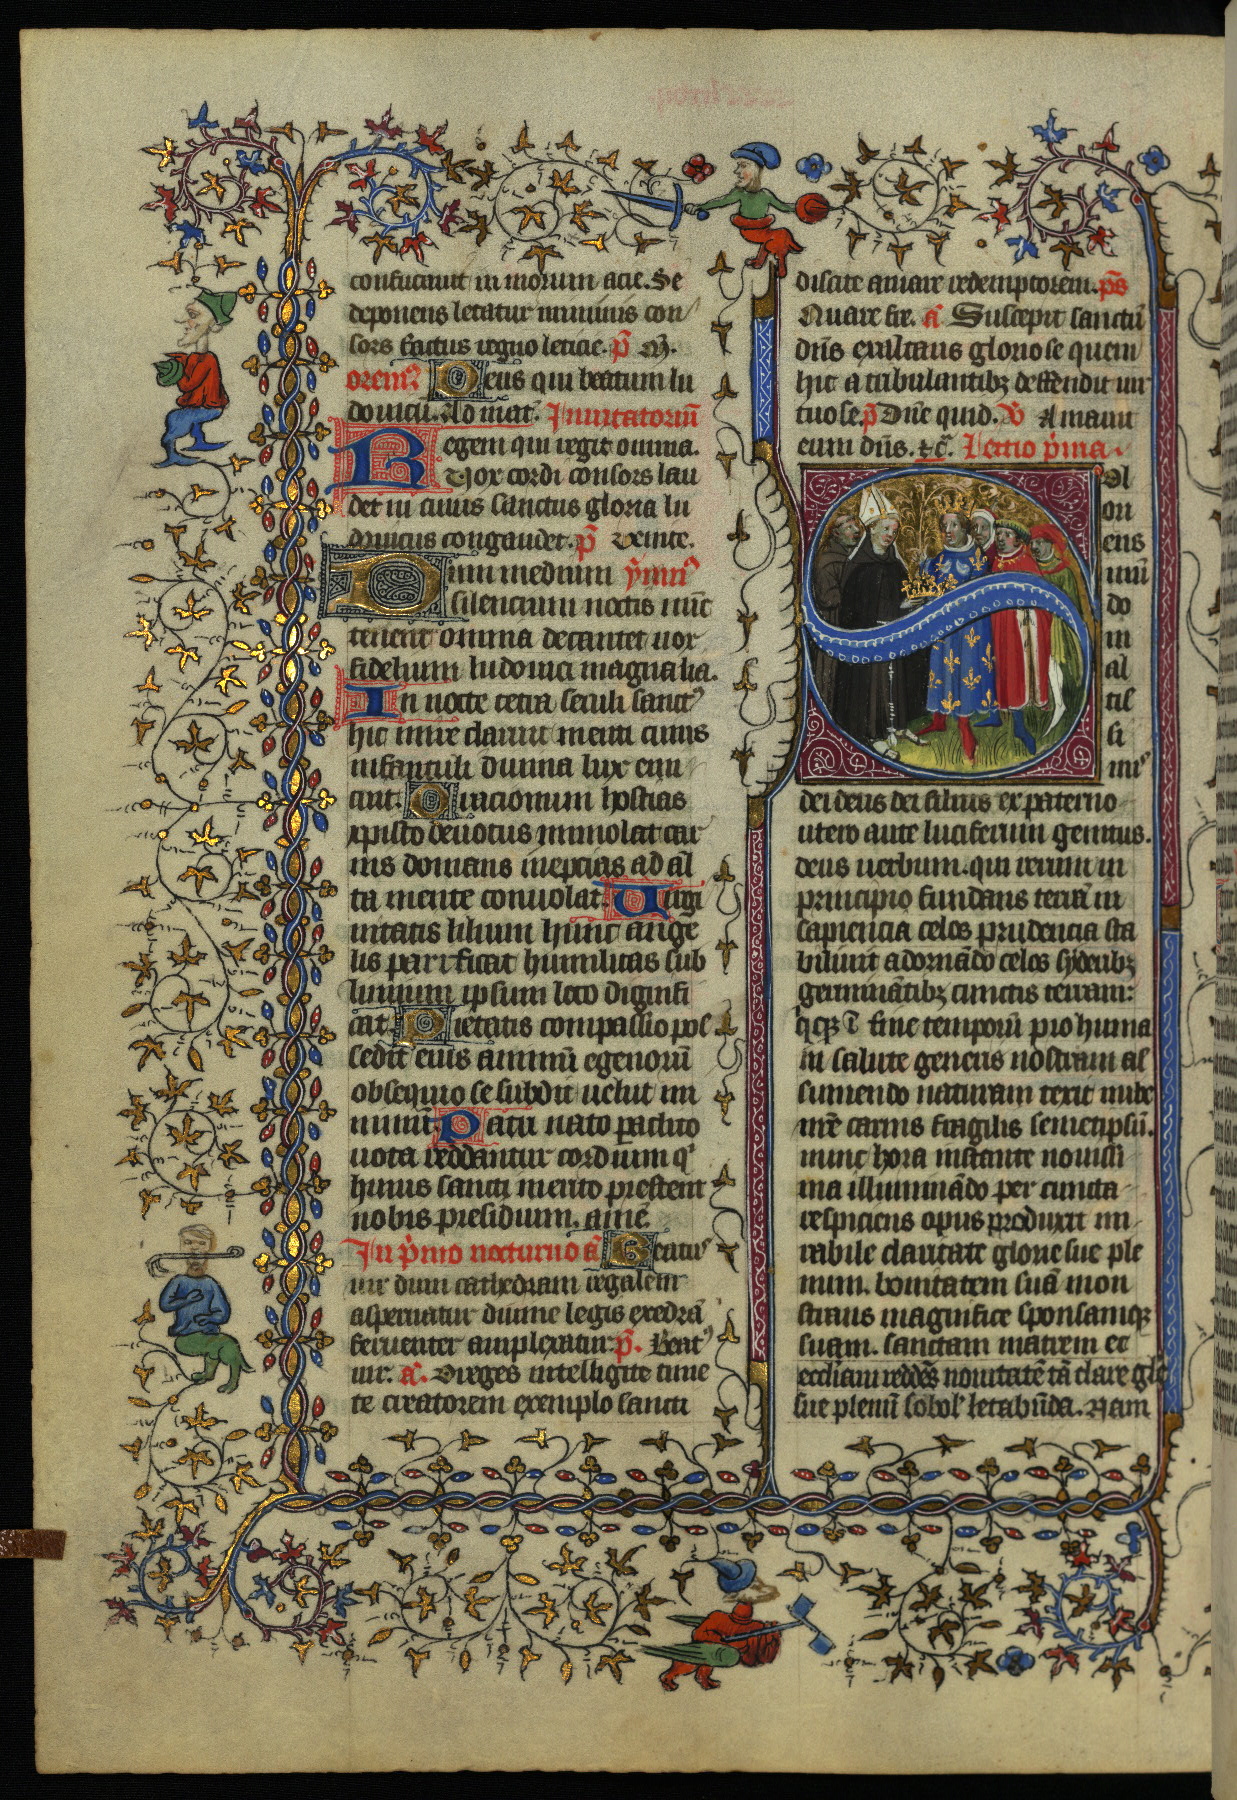 conflictaint in morum acie. Se
deponens letatur minimis con
sors factus regno leticie. p̄s M.
oremꝰ Deus qui beatum lu
douicū. Ad mat̄. Inuitatoriū
Regem qui regit omnia.
Vox cordi consors lau
det in cuius sanctus gloria lu
douicus congaudet. p̄s Venite.
Dum medium ymnꝰ
silencium noctis nūc
tenent omnia decantet uox
fidelium ludouici magnalia.
In nocte tetra seculi sanctꝰ
hic mire claruit menti cuius
infantuli diuina lux
aint. Diuicionum hostias
xpisto deuotus immolat car
nis domans inepcias ad al
ta mente conuolat. Uirgi
nitatis lilium hunc ange
lis parificat humilitas sub
limium ipsum loco dignifi
cat. Pietatis compassio pos
sedit eius animū egenorū
obsequio se subdit uelut mi
nimū. Patri nato paclito
uota reddantur cordium qͥ
huius sancti merito prestent
nobis presidium. amē.
In p̄mo nocturno a͞ Beatuꝰ
uir dum cathedram regalem
aspernatur diuine legis exedrā
feruenter amplexatur. p̄s. Beatꝰ
uir. a͞. O reges intelligite time
te creatorem exemplo sancti
discite amare redemptorem. p̄s
Quare fre. a͞ Suscepit sanctū
dn̄s exultans gloriose quem
hic a tribulantibꝫ deffendit uir
tuose. p̄s Dn̄e quid. V̄ Amauit
eum dn̄s. ⁊c̄. Lectio p̄ma
Sol
ori
ens
uni
do
in
al
tis
si
miꝰ
dei deus dei filius ex paterno
utero ante luciferum genitus.
deus uerbum. qui rerum in
principio fundans terrā in
sapiencia celos prudencia sta
biliuit adornādo celos syderibꝫ
germinātibꝫ cunctis terram:
qͥqꝫ ī fine temporū pro huma
ni salute generis nostram as
sumendo naturam texit nube
carnis fragilis semetipsū.
nunc hora instante nouissi
ma illuminādo per cuncta
respiciens opus produxit mi
rabile claritate glorie sue ple
num. bonitatem suā mon
strans magnifice sponsamqꝫ
suam. sanctam matrem ec
ecclīam reddēs nouitatē tā clare glōe
sue plenū sobol' letabūda. Nam